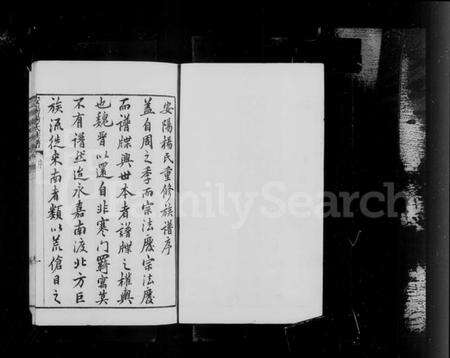 安陽楊氏重修族譜序
蓋自周之季而宗法廢宗法廢
而譜牒興世本者譜牒之權輿
也魏晉以還自非寒門羇寓莫
不有譜然迨永嘉南渡北方巨
族流徙來南者類以荒傖目之
FamilySearch